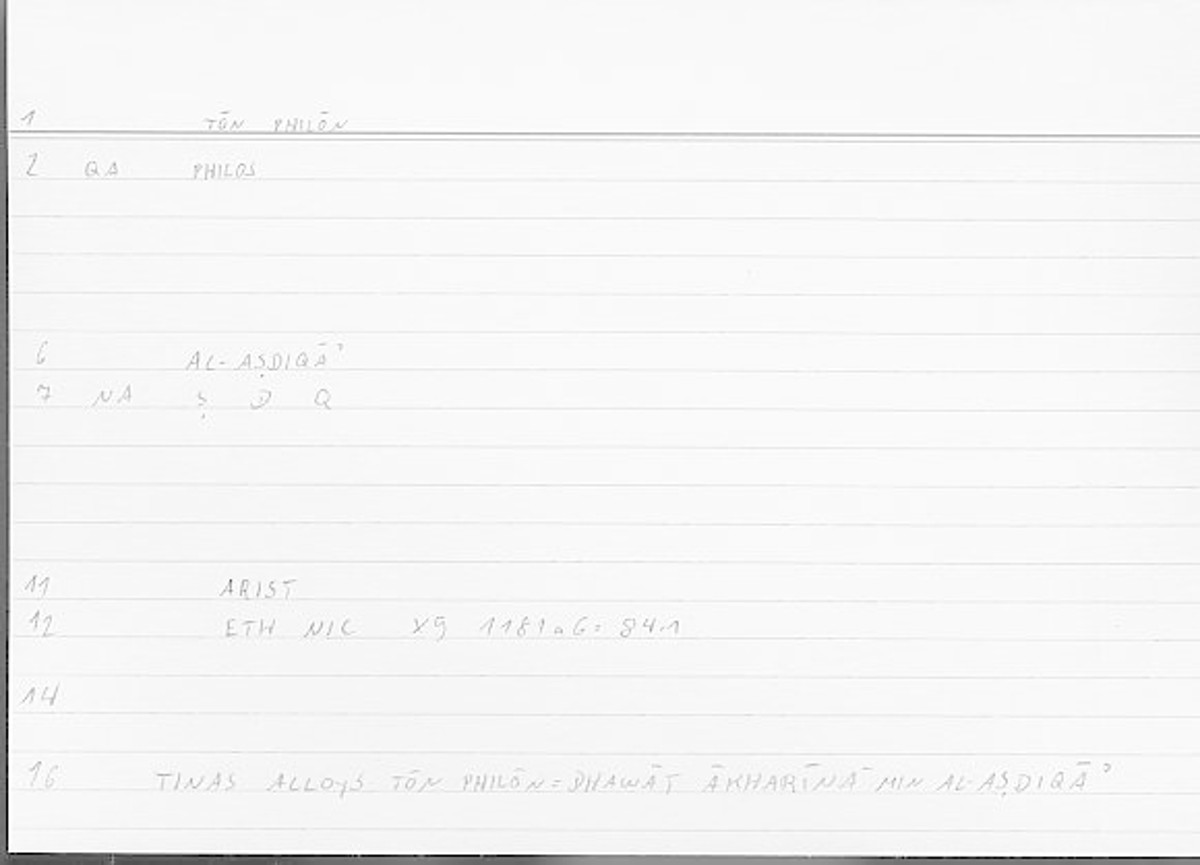 1 TŌN PHILŌN
2 QA PHILOS
6 AL-AṢDIQĀʾ
7 NA Ṣ D Q
11 ARIST
12 ETH NIC X9 1181a6: 84.1
14
16 TINAS ALLOyS TŌN PHILŌN = DHAWĀT ĀKHARĪNA MIN AL-AṢDIQĀʾ